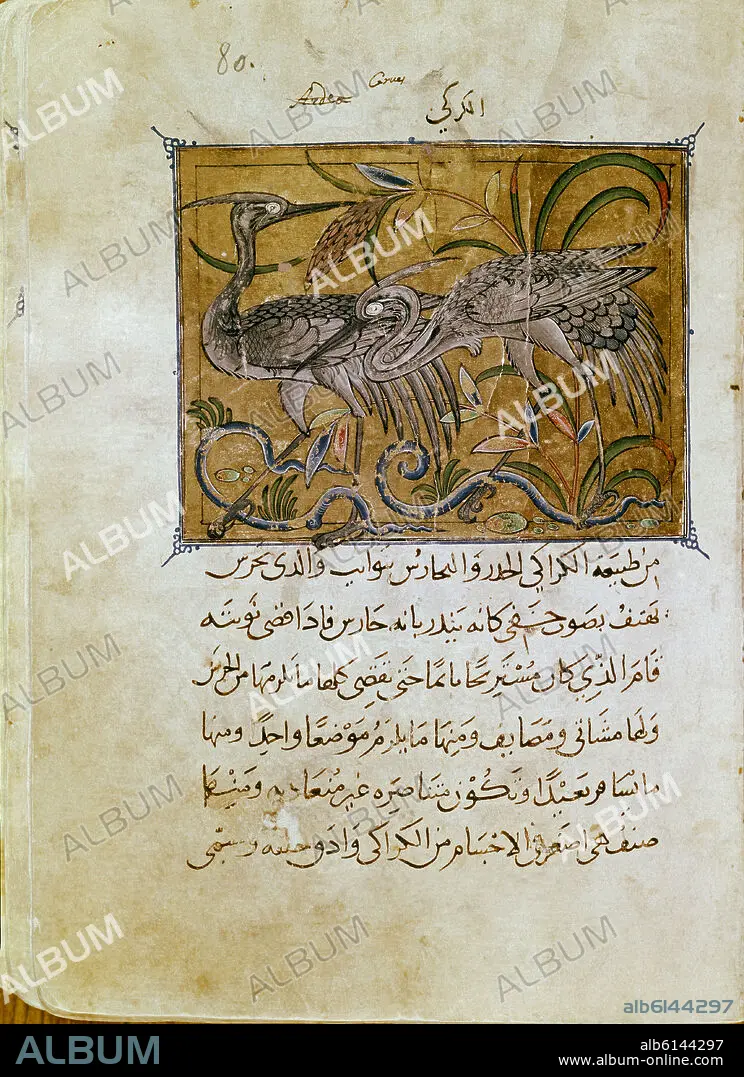 80.
Ardea Corvus
الكركي
من طبيعه الكراكي الحذر والتحارس بنوايب والذى يحرس
يهتف بصوت خفي كانه ينذر بانه حارس فاذا قضى نوبته
قام الذي كان مستريحا نايما حتى تقضي كلها ما يلزمها من الحرس
ولها مشاتي ومصايف ومنها ما يلزم موضعا واحدا ومنها
ما يسافر بعيدا وتكون متناصره غير متعاديه ومنها
صنف هي اصغر في الاجسام من الكراكي وادق خلقه وتسمى
ALBUM
alb6144297
ALBUM
alb6144297
www.album-online.com